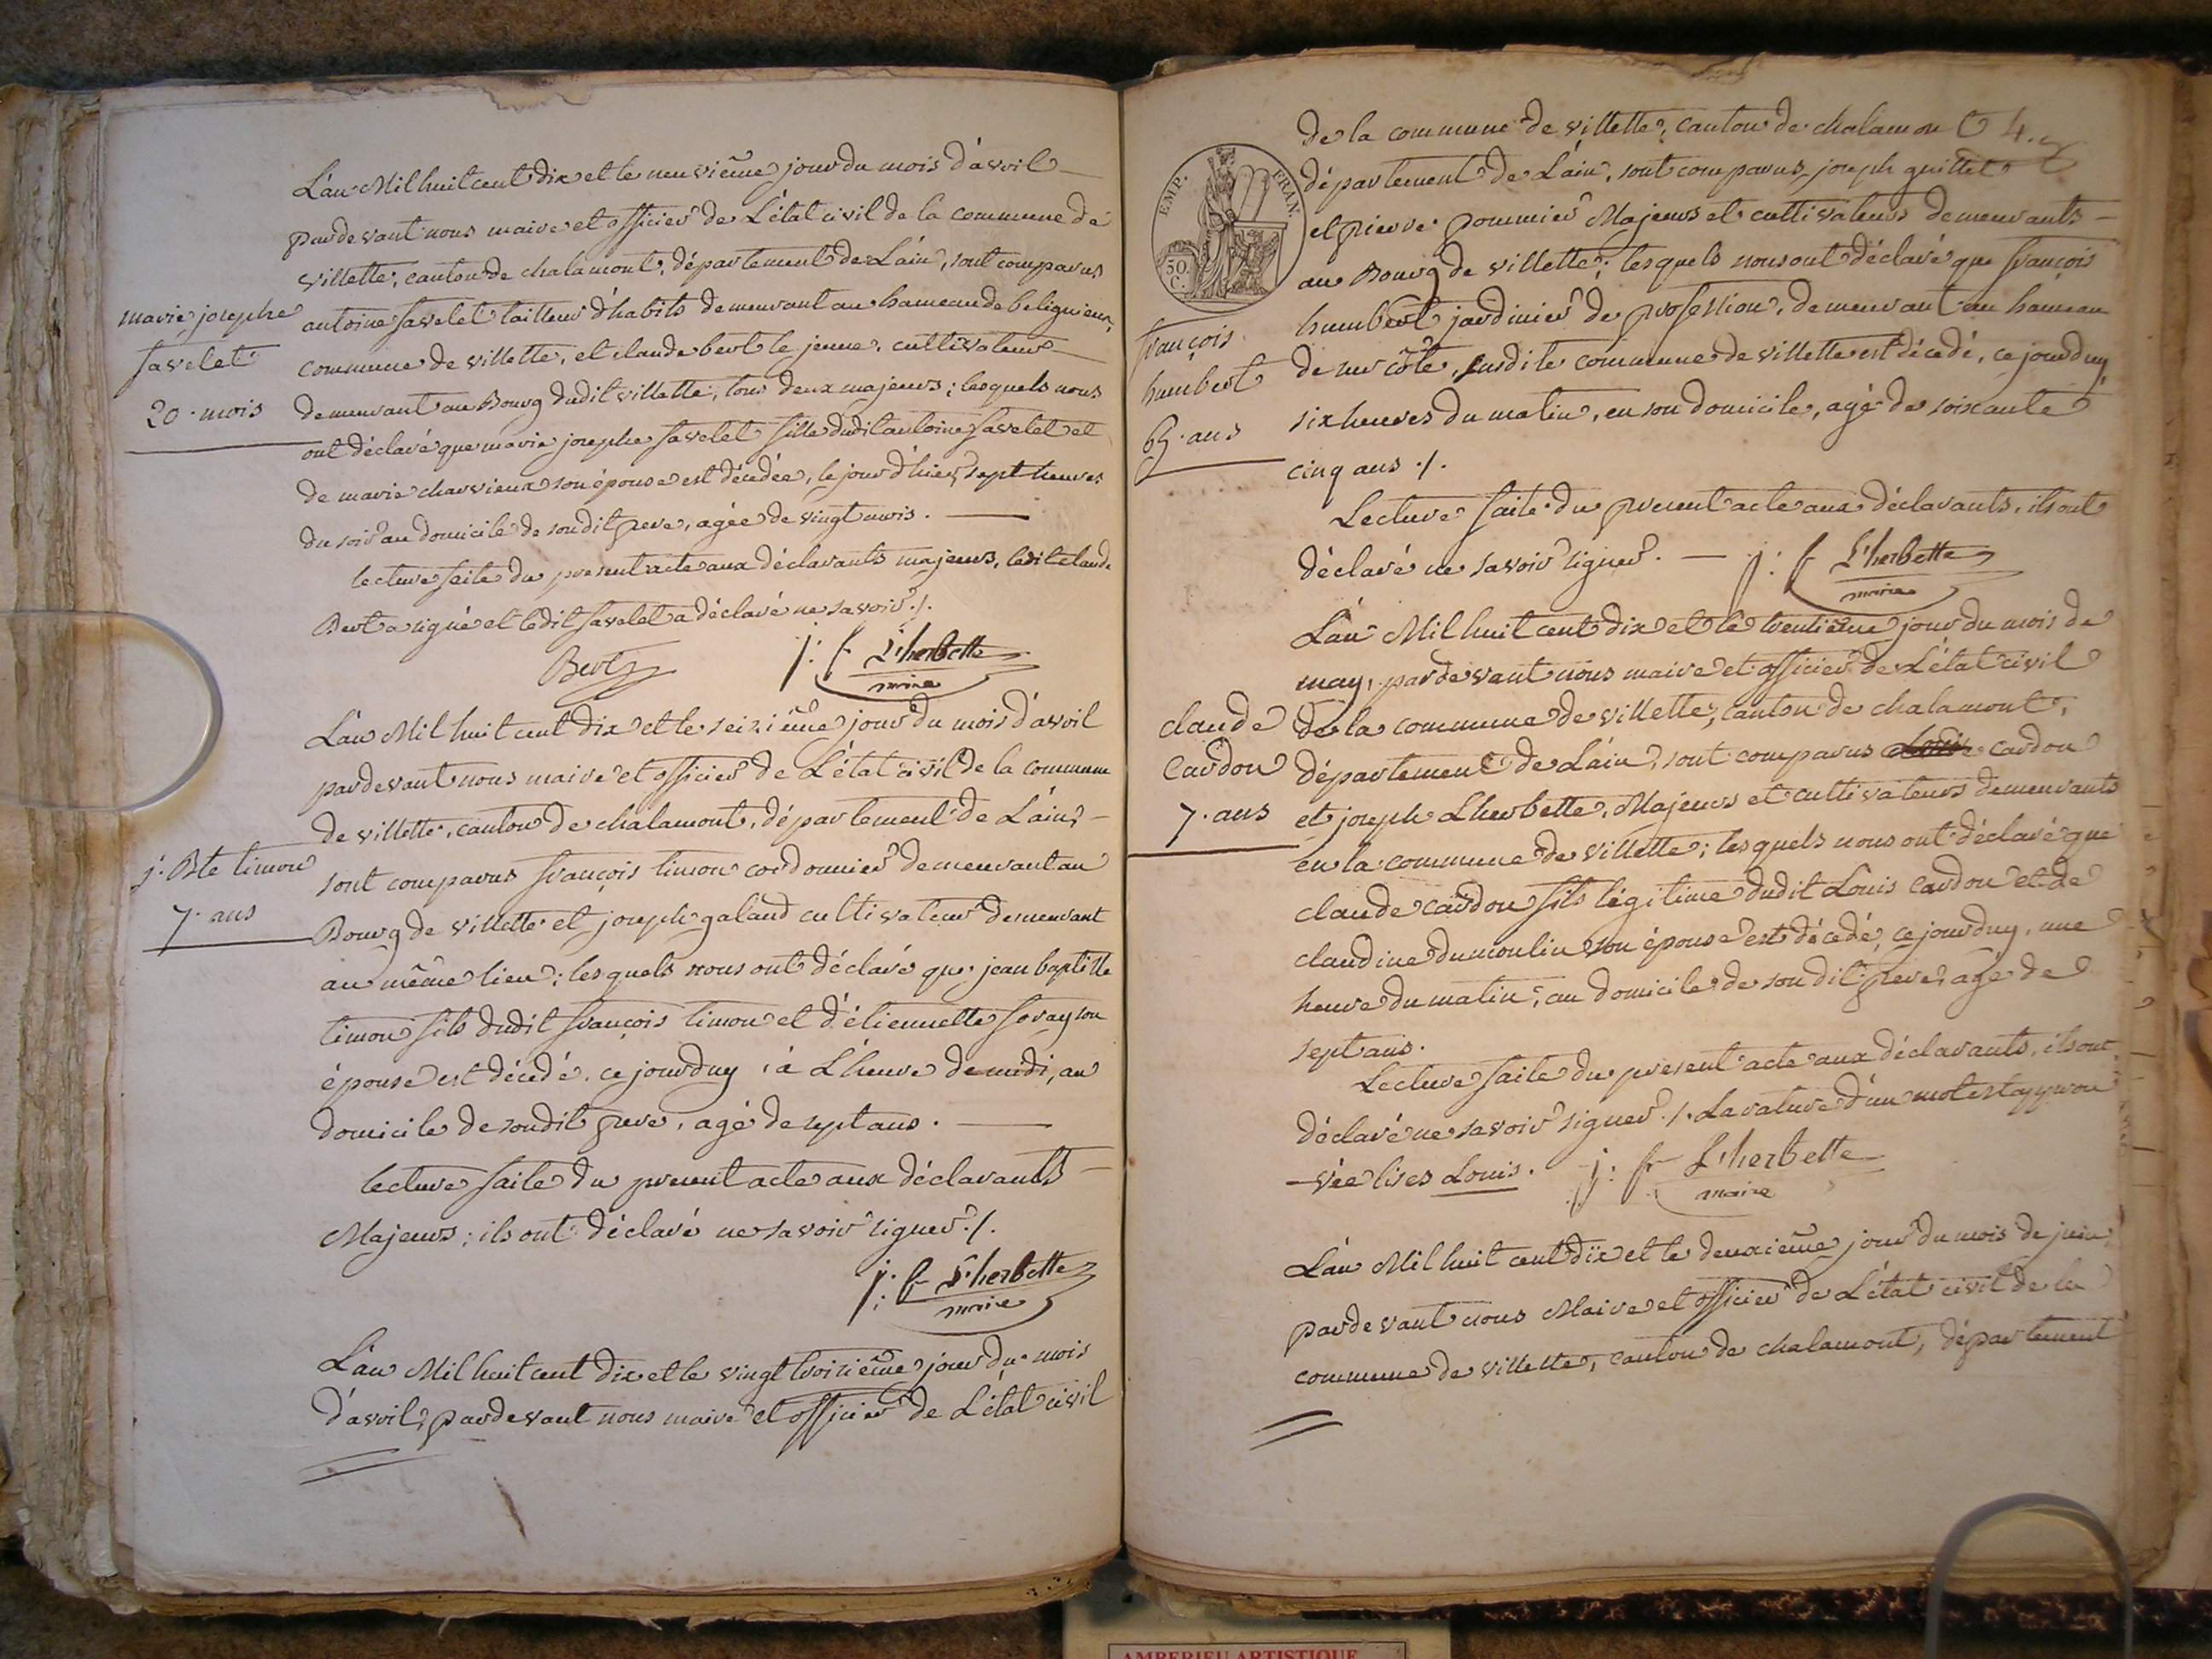 L'an Mil huit cent dix et le neuvième jour du mois d'avril
pardevant nous maire et officier de L'état civil de la commune de
villette, canton de chalamont, département de L'ain, sont comparus
marie josephe
favelet
20. mois
antoine favelet tailleur d'habits demeurant au hameau de beligneux,
commune de villette, et claude bert le jeune, cultivateur
demeurant au Bourg dudit villette, tous deux majeurs; lesquels nous
ont déclaré que marie josephe favelet fille dudit antoine favelet et
de marie charvieux son épouse est décédée, le jour d'hier, sept heures
du soir au domicile de son dit pere, agée de vingt mois.
lecture faite du present acte aux déclarants majeurs, ledit claude
Bert a signé et ledit favelet a déclaré ne savoir ./.
Bert
j: f L'herbette
maire
L'an Mil huit cent dix et le seizième jour du mois d'avril
pardevant nous maire et officier de L'état civil de la commune
de villette, canton de chalamont, département de L'ain,
j. Bte timon
7. ans
sont comparus françois timon cordonnier demeurant au
Bourg de villette et joseph galand cultivateur demeurant
au même lieu; lesquels nous ont déclaré que jean baptiste
timon fils dudit françois timon et d'étiennette foray son
épouse est décédé, ce jourduy, à L'heure de midi, au
domicile de sondit pere, agé de sept ans.
lecture faite du present acte aux déclarants
Majeurs; ils ont déclaré ne savoir signer ./.
j: fr L'herbette
maire
L'an Mil huit cent dix et le vingt troizième jour du mois
d'avril, pardevant nous maire et officier de L'état civil
de la commune de villette, canton de chalamont 4.
EMP. FRAN.
50.
C.
département de L'ain, sont comparus, joseph guillet
et pierre pommier Majeurs et cultivateurs demeurants
au Bourg de villette; lesquels nous ont déclaré que françois
françois
humbert
65. ans
humbert jardinier de profession, demeurant au hameau
de mi côte, susdite commune de villette est décedé, ce jourduy,
six heures du matin, en son domicile, agé de soixante
cinq ans ./.
Lecture faite du present acte aux déclarants, ils ont
déclaré ne savoir signer.
j: f L'herbette
maire
L'an Mil huit cent dix et le trentième jour du mois de
may, pardevant nous maire et officier de L'état civil
claude
Cardon
7. ans
de la commune de villette, canton de chalamont,
département de L'ain, sont comparus cardon
et joseph Lherbette, Majeurs et cultivateurs demeurants
en la commune de villette; lesquels nous ont déclaré que
claude cardon fils légitime dudit Louis cardon et de
claudine dumoulin son épouse est décédé, ce jourduy, une
heure du matin, au domicile de son dit pere, agé de
sept ans.
Lecture faite du present acte aux déclarants, ils ont
déclaré ne savoir signer ./. La rature d'un mot est approu
-vée lises Louis.
j: fr L'herbette
maire
L'an Mil huit cent dix et le deuxième jour du mois de juin,
pardevant nous Maire et officier de L'état civil de la
commune de villette, canton de chalamont, département
AMBERIEU ARTISTIQUE